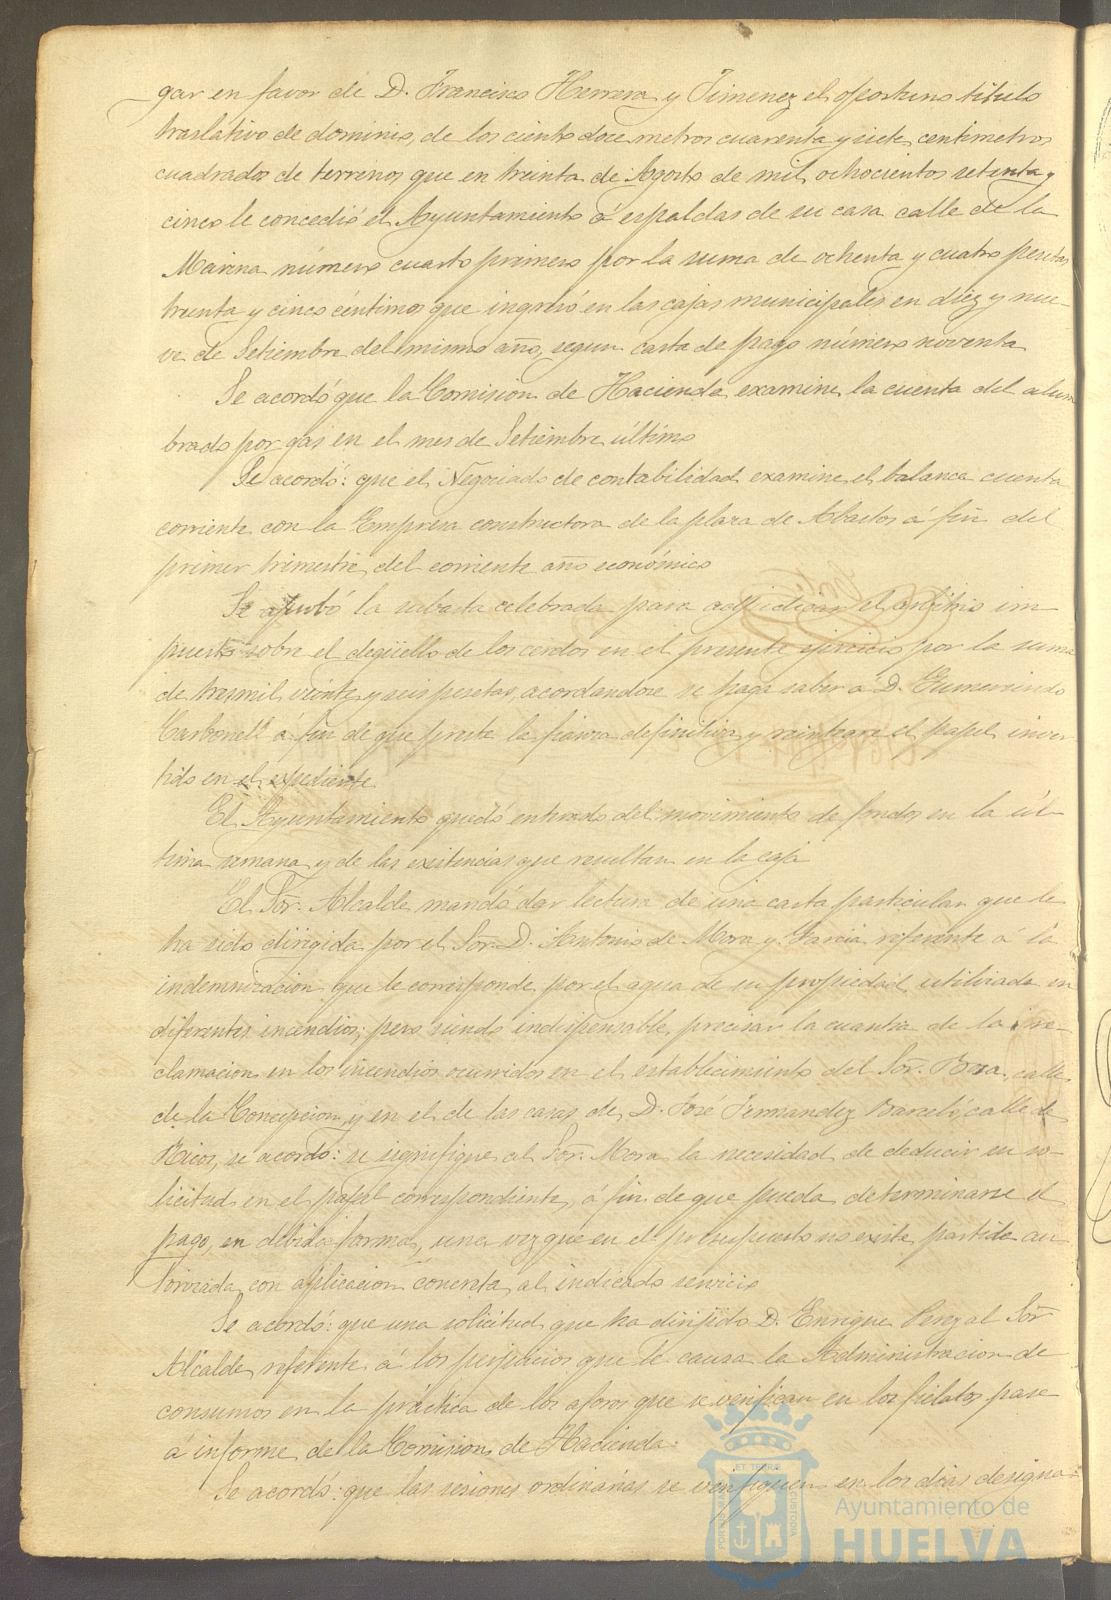 gar en favor de D. Francisco Herrera y Jimenez el oportuno titulo
traslativo de dominio, de los ciento doce metros cuarenta y siete centimetros
cuadrados de terrenos que en treinta de Agosto de mil ochocientos setenta y
cinco le concedió el Ayuntamiento á espaldas de su casa calle de la
Marina número cuarto primero por la suma de ochenta y cuatro pesetas
treinta y cinco céntimos que ingresó en las cajas municipales en diez y nue-
ve de Setiembre del mismo año, segun carta de pago número noventa
Se acordó que la Comision de Hacienda examine la cuenta del alum
brado por gas en el mes de Setiembre último
Se acordó: que el Negociado de contabilidad examine el balance cuenta
corriente con la Empresa constructora de la plaza de Abastos á fin del
primer trimestre del corriente año económico
Se aprobó la subasta celebrada para adjudicar el arbitrio im
puesto sobre el degüello de los cerdos en el presente ejercicio por la suma
de tres mil veinte y seis pesetas, acordandose se haga saber á D. Gumersindo
Carbonell á fin de que preste la fianza definitiva y reintegre el papel inver
tido en el expediente
El Ayuntamiento quedó enterado del movimiento de fondos en la úl-
tima semana y de las existencias que resultan en la caja
El Sor. Alcalde mandó dar lectura de una carta particular que le
ha sido dirigida por el Sor. D. Antonio de Mora y Garcia referente á la
indemnizacion que le corresponde por el agua de su propiedad utilizada en
diferentes incendios; pero siendo indispensable precisar la cuantia de la re-
clamacion en los incendios ocurridos en el establecimiento del Sor. calle
de la Concepcion, y en el de las casas de D. José Fernandez Barceló, calle de
Ricos, se acordó: se signifique al Sor. Mora la necesidad de deducir en so-
licitud en el papel correspondiente, á fin de que pueda determinarse el
pago, en debida forma, una vez que en el presupuesto no existe partida au
torizada con aplicacion concreta al indicado servicio
Se acordó: que una solicitud que ha dirijido D. Enrique Perez al Sor
Alcalde referente á los perjuicios que le causa la Administracion de
consumos en la práctica de los aforos que se verifican en los fielatos pase
á informe de la Comision de Hacienda.
Se acordó: que las sesiones ordinarias se verifiquen en los dias designa-
PORTUS MARIS ET TERRAE CUSTODIA
Ayuntamiento de
HUELVA